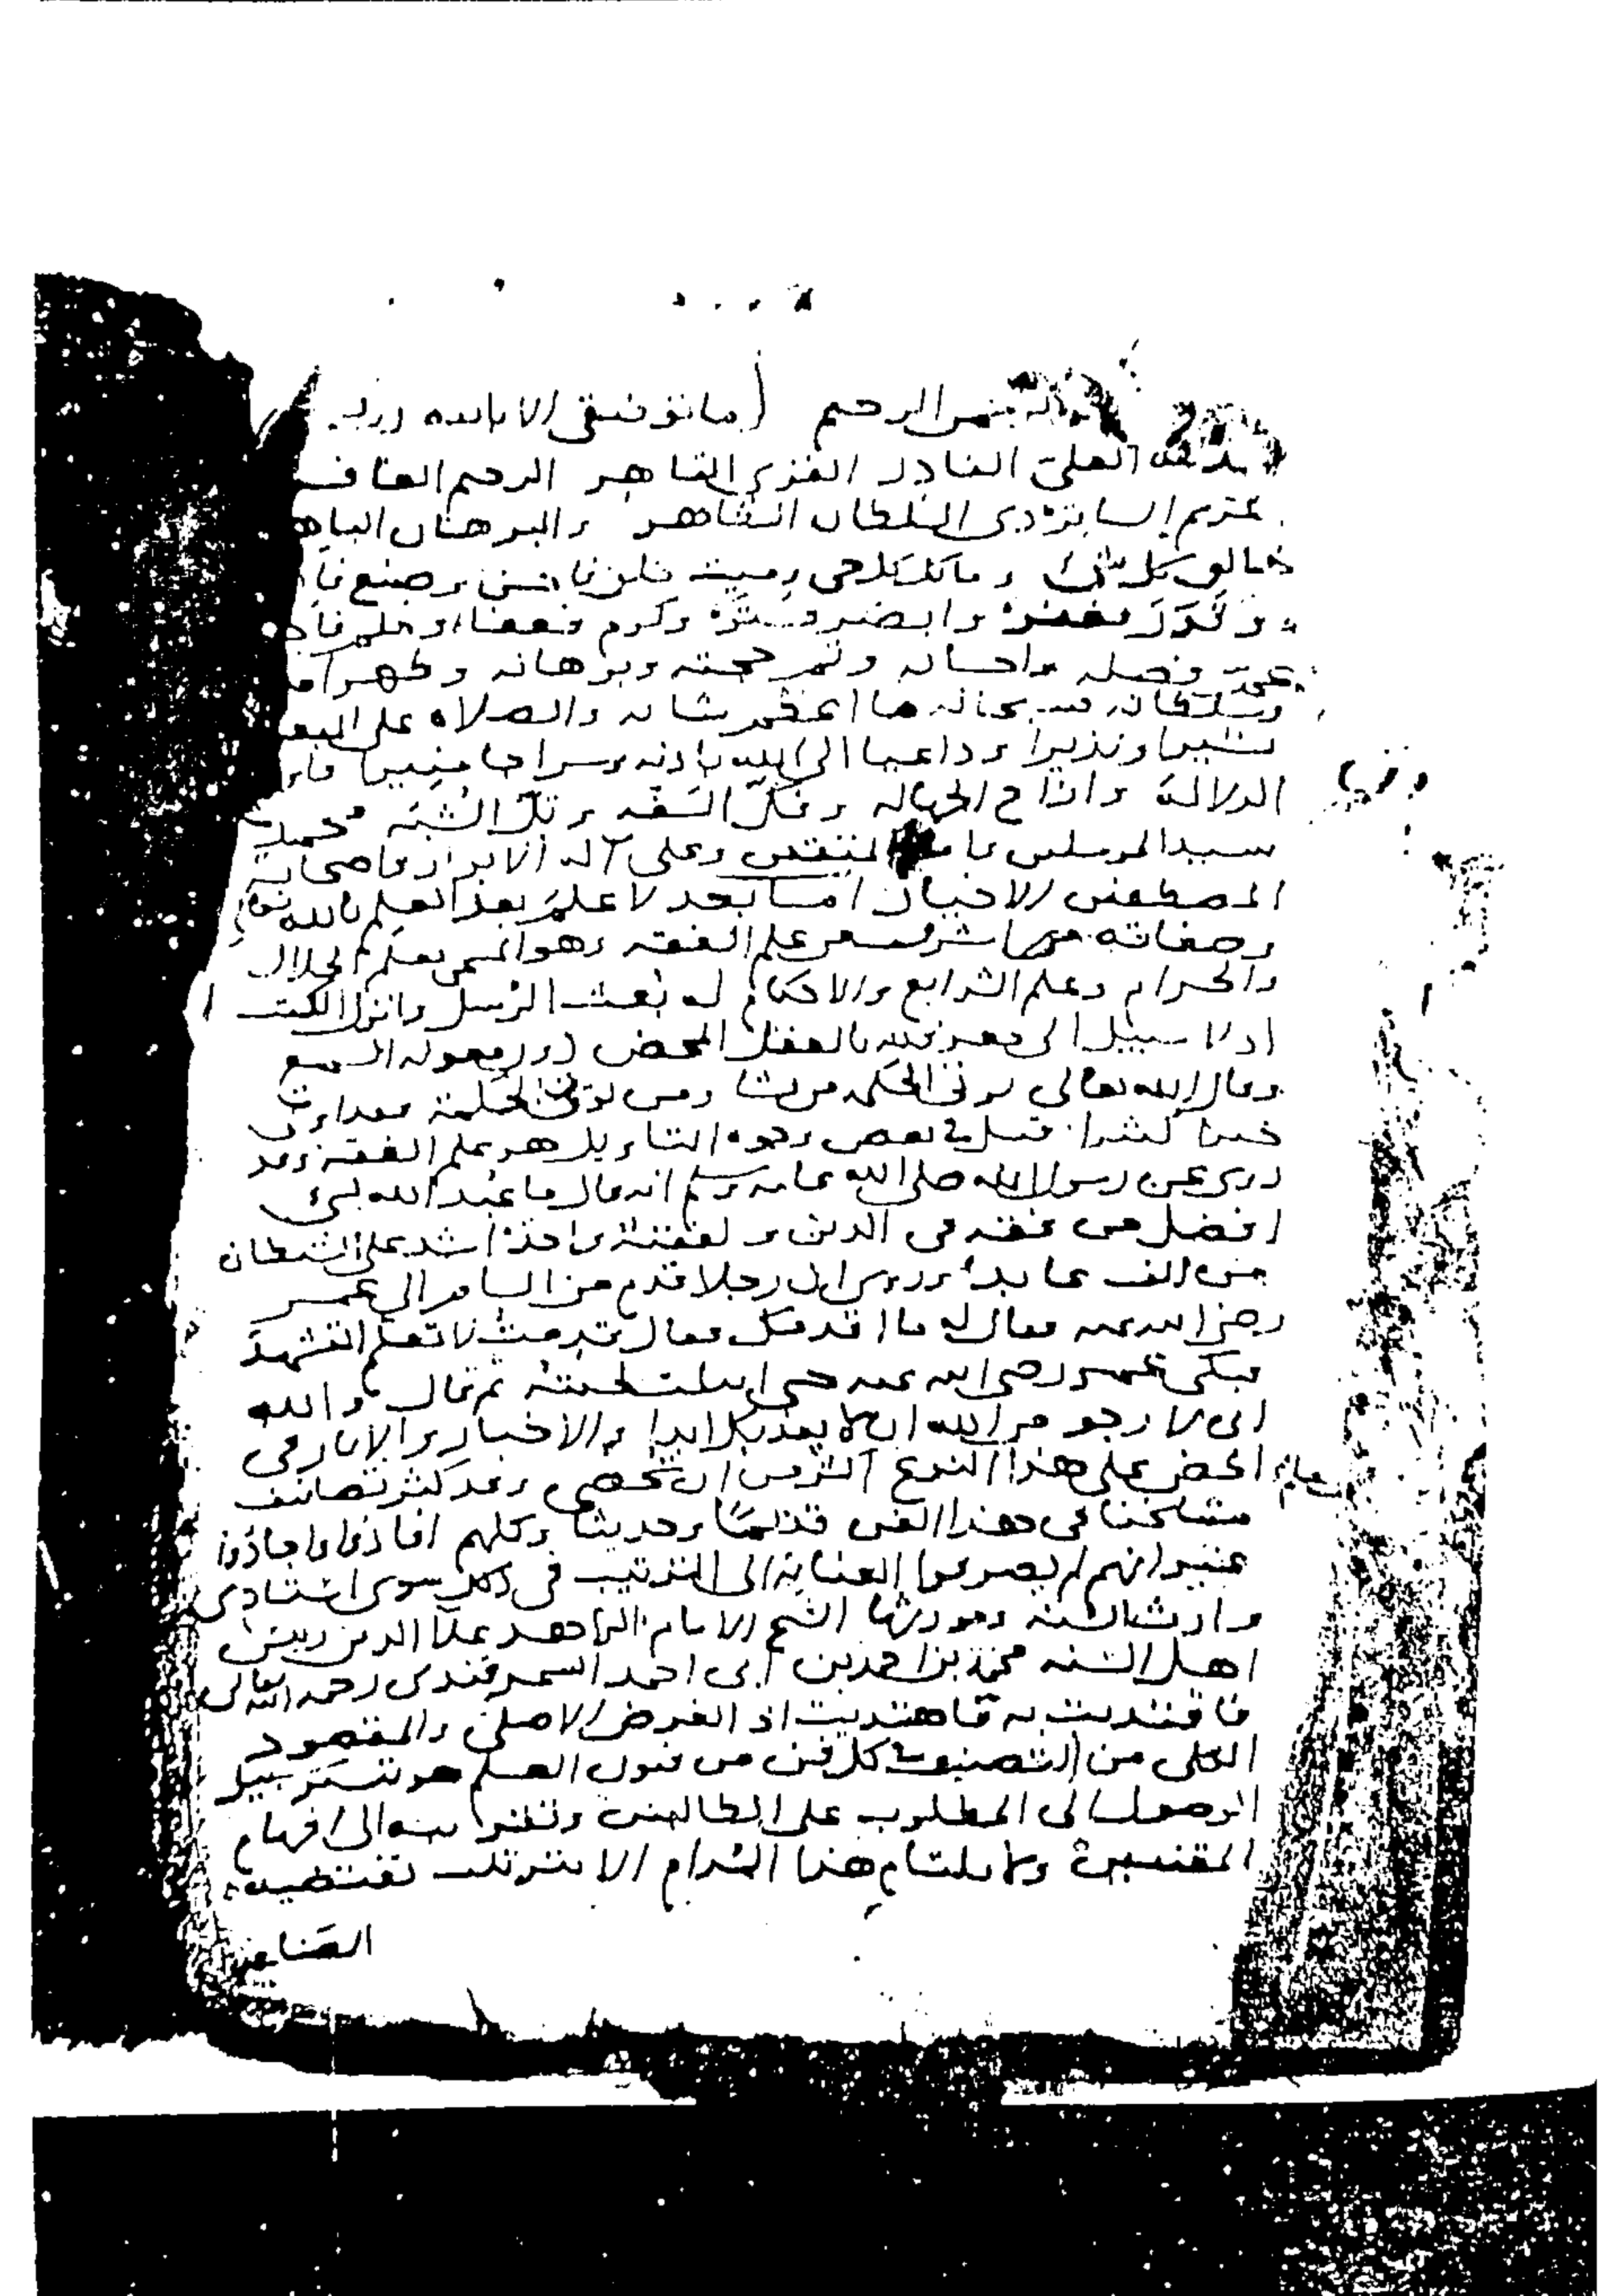 الرحمن الرحيم وما توفيقي الا بالله
العلي القادر القوي القاهر الرحيم الغافر
الكريم الساتر ذي السلطان الظاهر والبرهان الباهر
خالق كل شيء ومالك كل حي وميت خلق فاحسن وصنع
وقدر فغفر وابصر فستر وكرم فعفا وحلم
عم فضله واحسانه وتم حجته وبرهانه وظهر
وسلطانه فسبحانه ما اعظم شانه والصلاة على
بشيرا ونذيرا وداعيا الى الله باذنه وسراجا منيرا
الدلالة وازاح الجهالة وفل السفه وثل الشبه محمد
سيد المرسلين المتقين وعلى آله الابرار واصحابه
المصطفين الاخيار اما بعد لا علم بعد العلم بالله
وصفاته اشرف من علم الفقه وهو المسمى بعلم الحلال
والحرام وعلم الشرايع والاحكام له بعث الرسل وانزل الكتب
اذ لا سبيل الى معرفته بالعقل المحض دون معونة السمع
وقال الله تعالى يوتي الحكمة من يشا ومن يوت الحكمة فقد اوتي
خيرا كثيرا قيل في بعض وجوه التاويل هو علم الفقه وقد
روي عن رسول الله صلى الله عليه وسلم انه قال ما عبد الله بشيء
افضل من فقه في الدين ولفقيه واحد اشد على الشيطان
من الف عابد وروي ان رجلا قدم من الشام الى عمر
رضي الله عنه فقال له ما اقدمك فقال قدمت لاتعلم التشهد
فبكى عمر رضي الله عنه حتى ابتلت لحيته ثم قال والله
اني لارجو من الله ان لا يعذبك ابدا والاخبار والاثار في
الحض على هذا النوع اكثر من ان تحصى وقد كثر تصانيف
مشايخنا في هذا الفن قديما وحديثا وكلهم افادوا واجادوا
غير انهم لم يصرفوا العناية الى الترتيب في ذلك سوى استاذي
وارث السنة ومورثها الشيخ الامام الزاهد علا الدين رييس
اهل السنة محمد بن احمد بن ابي احمد السمرقندي رحمه الله تعالى
فاقتديت به فاهتديت اذ الغرض الاصلي والمقصود
الكلي من التصنيف في كل فن من فنون العلم هو تيسير سبيل
الوصول الى المطلوب على الطالبين وتقريبه الى افهام
المقتبسين ولا يلتام هذا المرام الا بترتيب تقتضيه
الصناعة